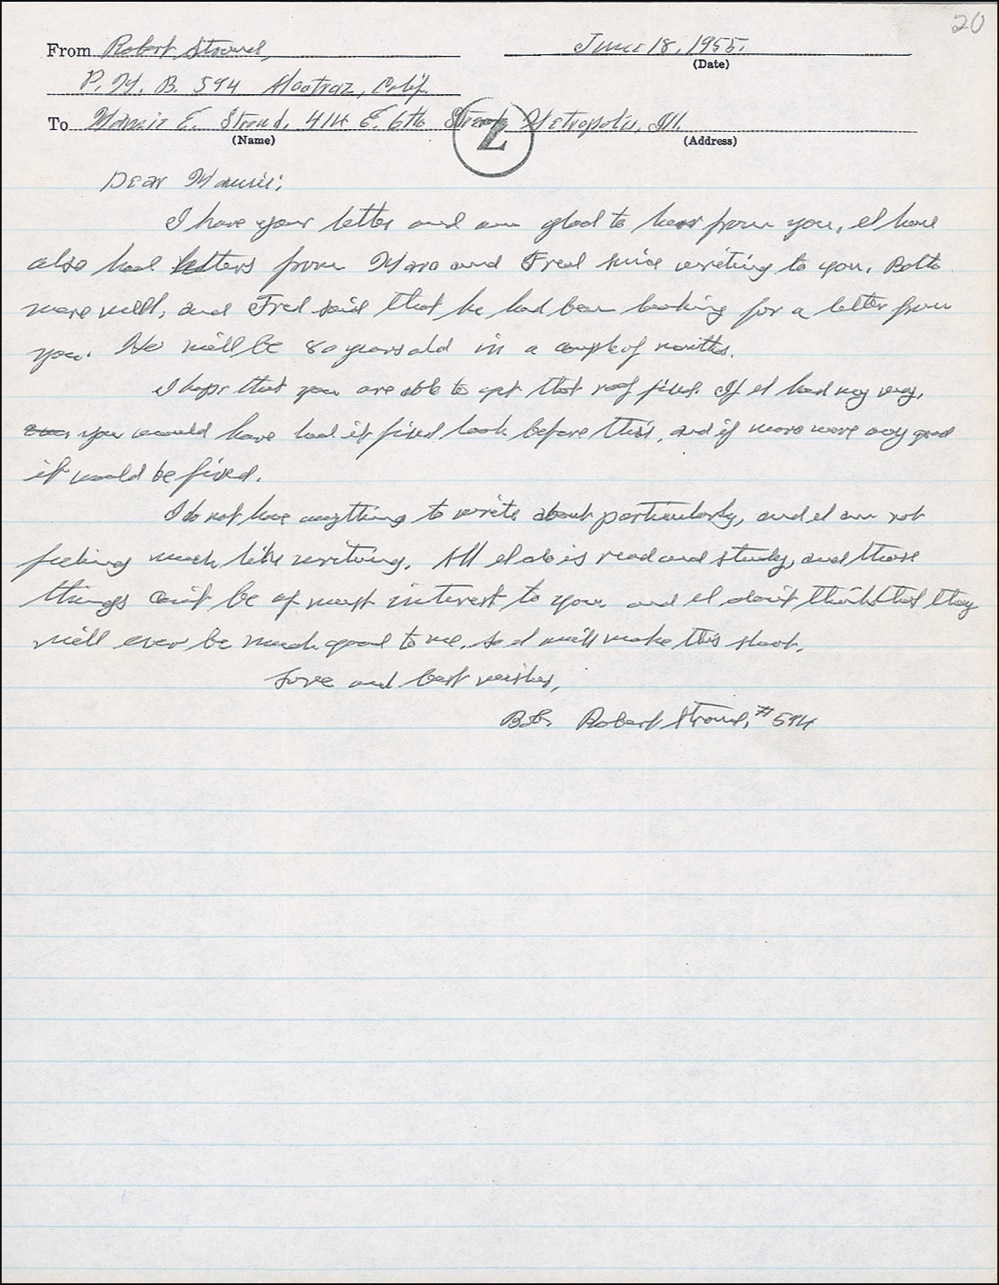 20
From Robert Stroud,
June 18, 1955.
(Date)
P. M. B. 594 Alcatraz, Calif.
To Mamie E. Stroud, 414 E. 6th Street Metropolis, Ill.
(Name)
(Address)
Z
Dear Mamie:
I have your letter and am glad to hear from you. I have
also had letters from Marc and Fred since writing to you. Both
were well, and Fred said that he had been looking for a letter from
you. He will be 80 years old in a couple of months.
I hope that you are able to get that roof fixed. If I had my way,
you would have had it fixed before this, and if were any good
it would be fixed.
I do not have anything to write about particularly, and I am not
feeling much like writing. All I do is read and study, and those
things can't be of much interest to you and I don't think that they
will ever be much good to me. So I will make this short.
Love and best wishes,
Bob. Robert Stroud, #594